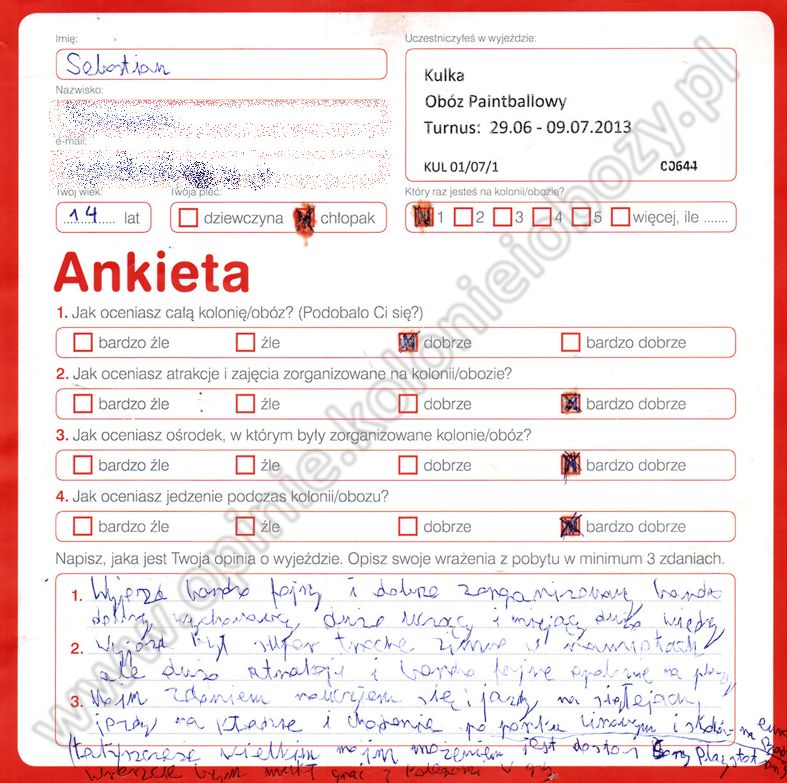 Imię:
Sebastian
Uczestniczyłeś w wyjeździe:
Kulka
Obóz Paintballowy
Turnus: 29.06 - 09.07.2013
KUL 01/07/1 C0644
Nazwisko:
e-mail:
Twój wiek:
14 lat
Twoja płeć:
dziewczyna chłopak
Który raz jesteś na kolonii/obozie?
1 2 3 4 5 więcej, ile .......
Ankieta
1. Jak oceniasz całą kolonię/obóz? (Podobało Ci się?)
bardzo źle źle dobrze bardzo dobrze
2. Jak oceniasz atrakcje i zajęcia zorganizowane na kolonii/obozie?
bardzo źle źle dobrze bardzo dobrze
3. Jak oceniasz ośrodek, w którym były zorganizowane kolonie/obóz?
bardzo źle źle dobrze bardzo dobrze
4. Jak oceniasz jedzenie podczas kolonii/obozu?
bardzo źle źle dobrze bardzo dobrze
Napisz, jaka jest Twoja opinia o wyjeździe. Opisz swoje wrażenia z pobytu w minimum 3 zdaniach.
1. bardzo fajny i dobrze zorganizowany bardzo
dobrzy wychowawcy dużo i mający dużo wiedzy
2. Wyjazd był super trochę zimno w namiotach
ale dużo atrakcji i bardzo fajne na plaży
3. Moim zdaniem nauczyłem się jazdy na
jazdy na i chodzenia po parku linowym i
wielkim moim marzeniem jest dostać
grać z w
www.opinie.kolonieiobozy.pl